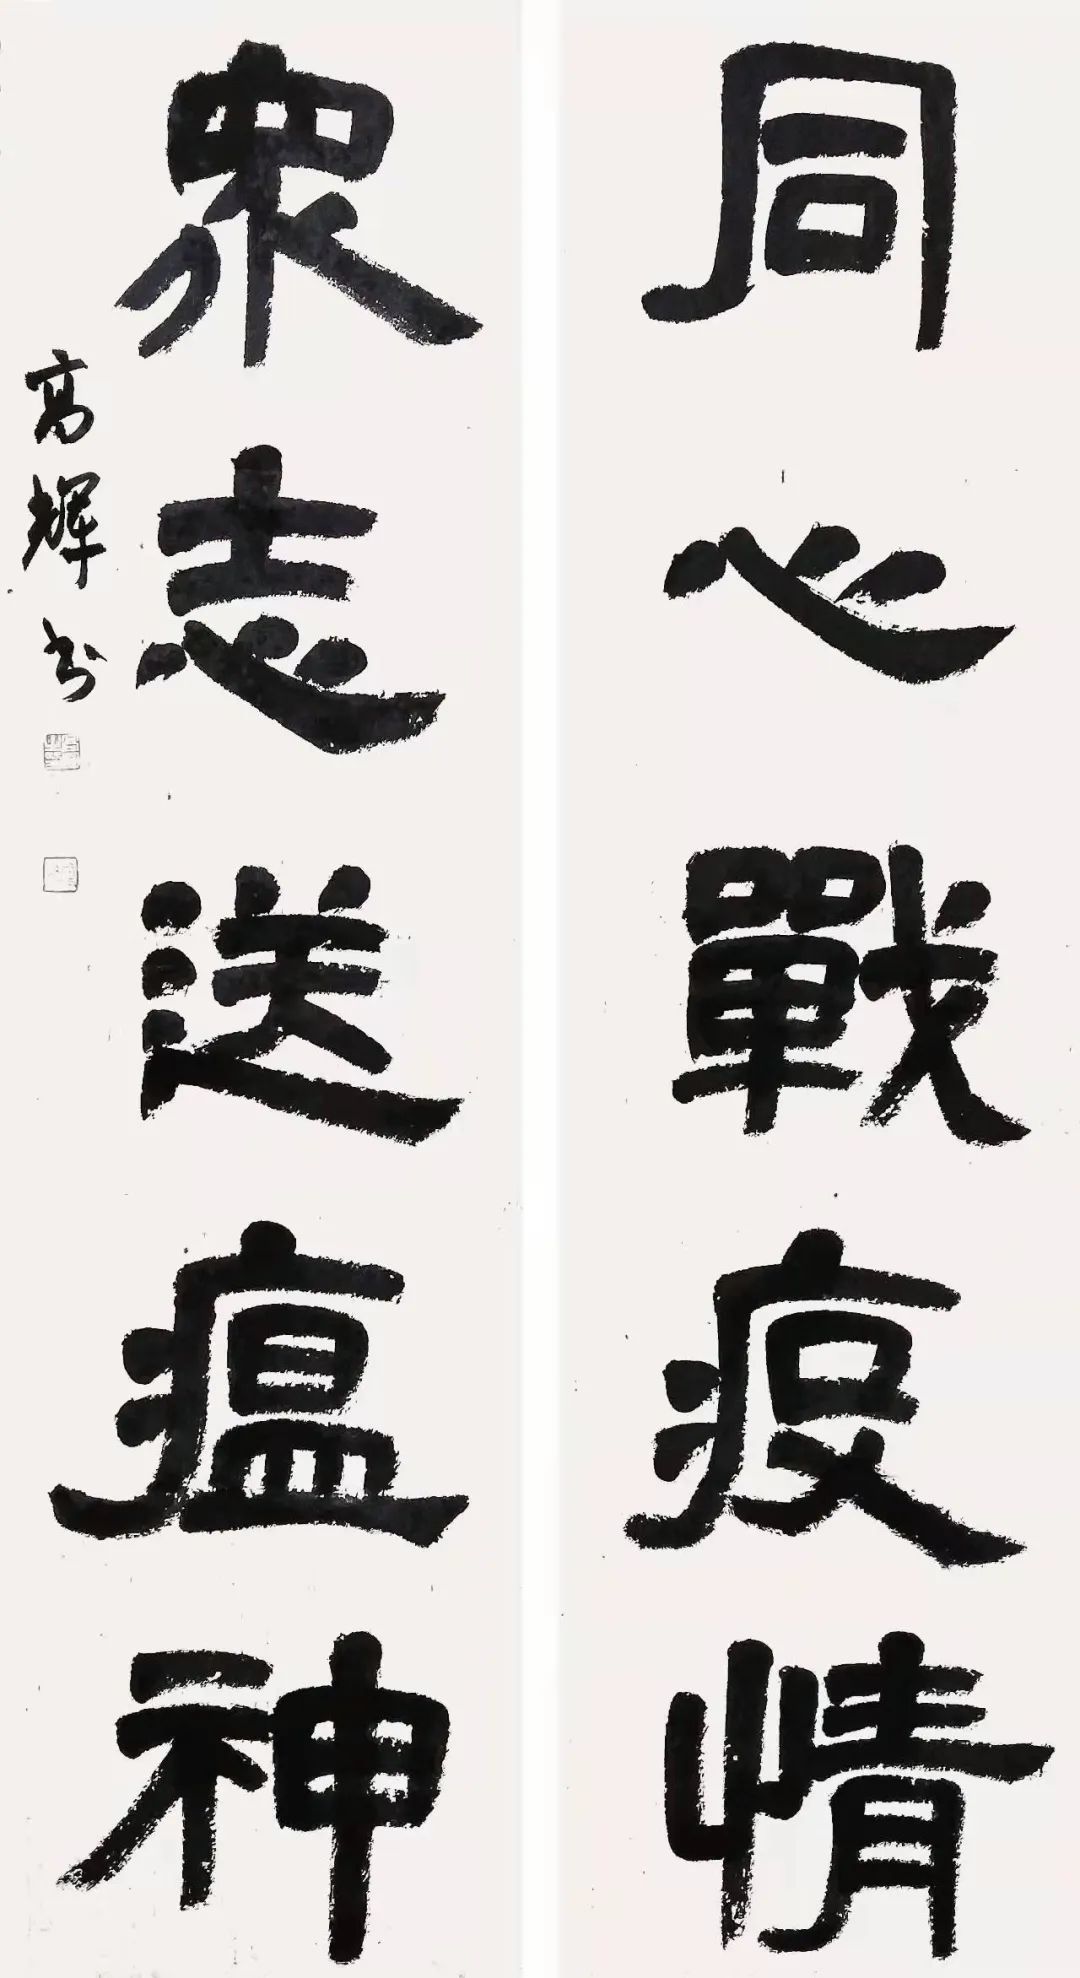 同心戰疫情
眾志送瘟神
高輝书